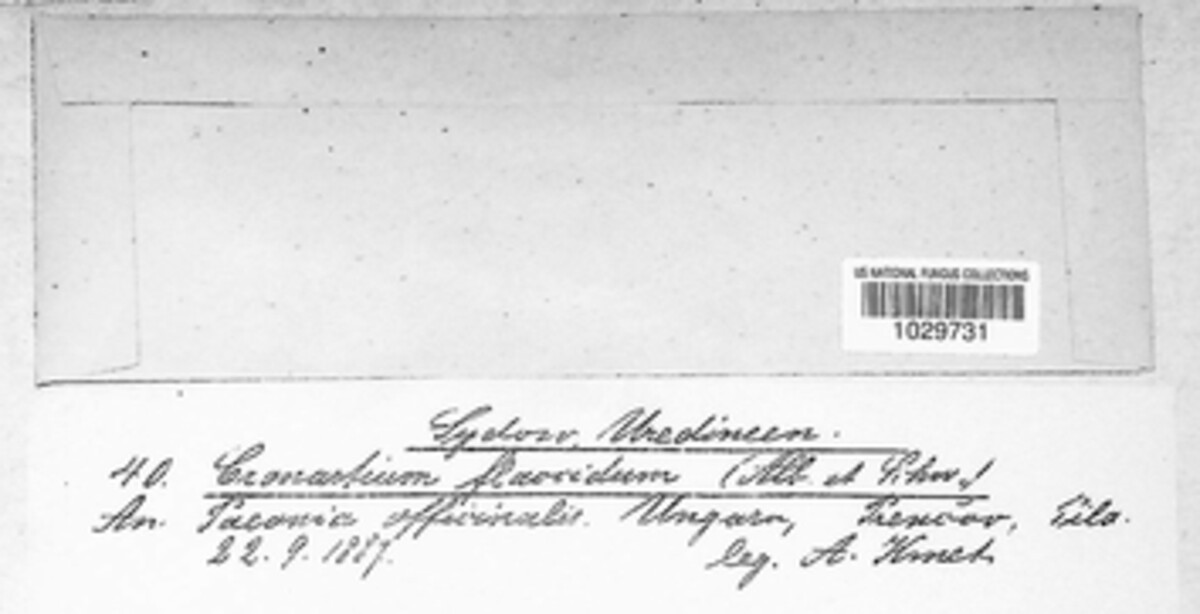 US NATIONAL FUNGUS COLLECTIONS
1029731
Sydow, Uredineen.
40. Cronartium flaccidum (Alb. et Schw.)
An. Paeonia officinalis. Ungarn,
22. 9. 1887. leg. A. Kmet